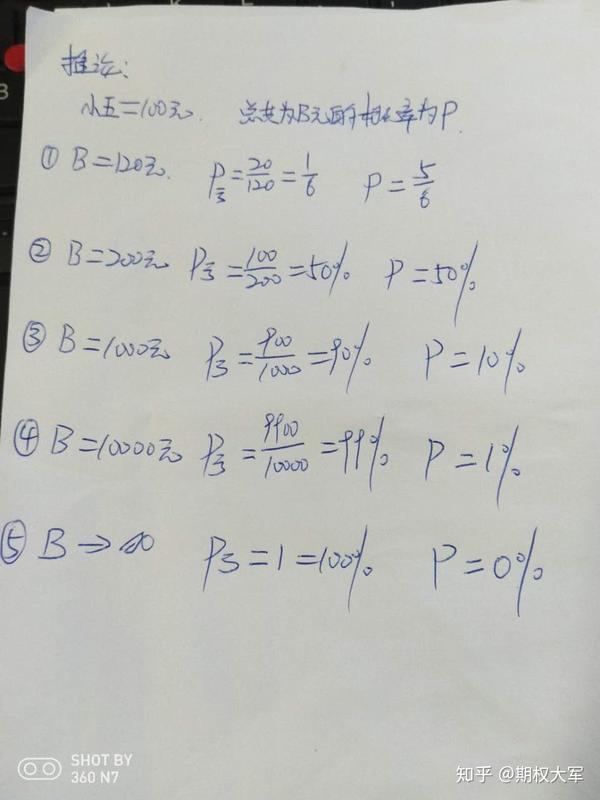 推论:
小王=100元. 总支为B元的概率为P.
① B=120元. P习=20/120=1/6 P=5/6
② B=200元 P习=100/200=50% P=50%
③ B=1000元 P习=900/1000=90% P=10%
④ B=10000元 P习=9900/10000=99% P=1%
⑤ B→∞ P习=1=100% P=0%
SHOT BY
360 N7
知乎 @期权大军